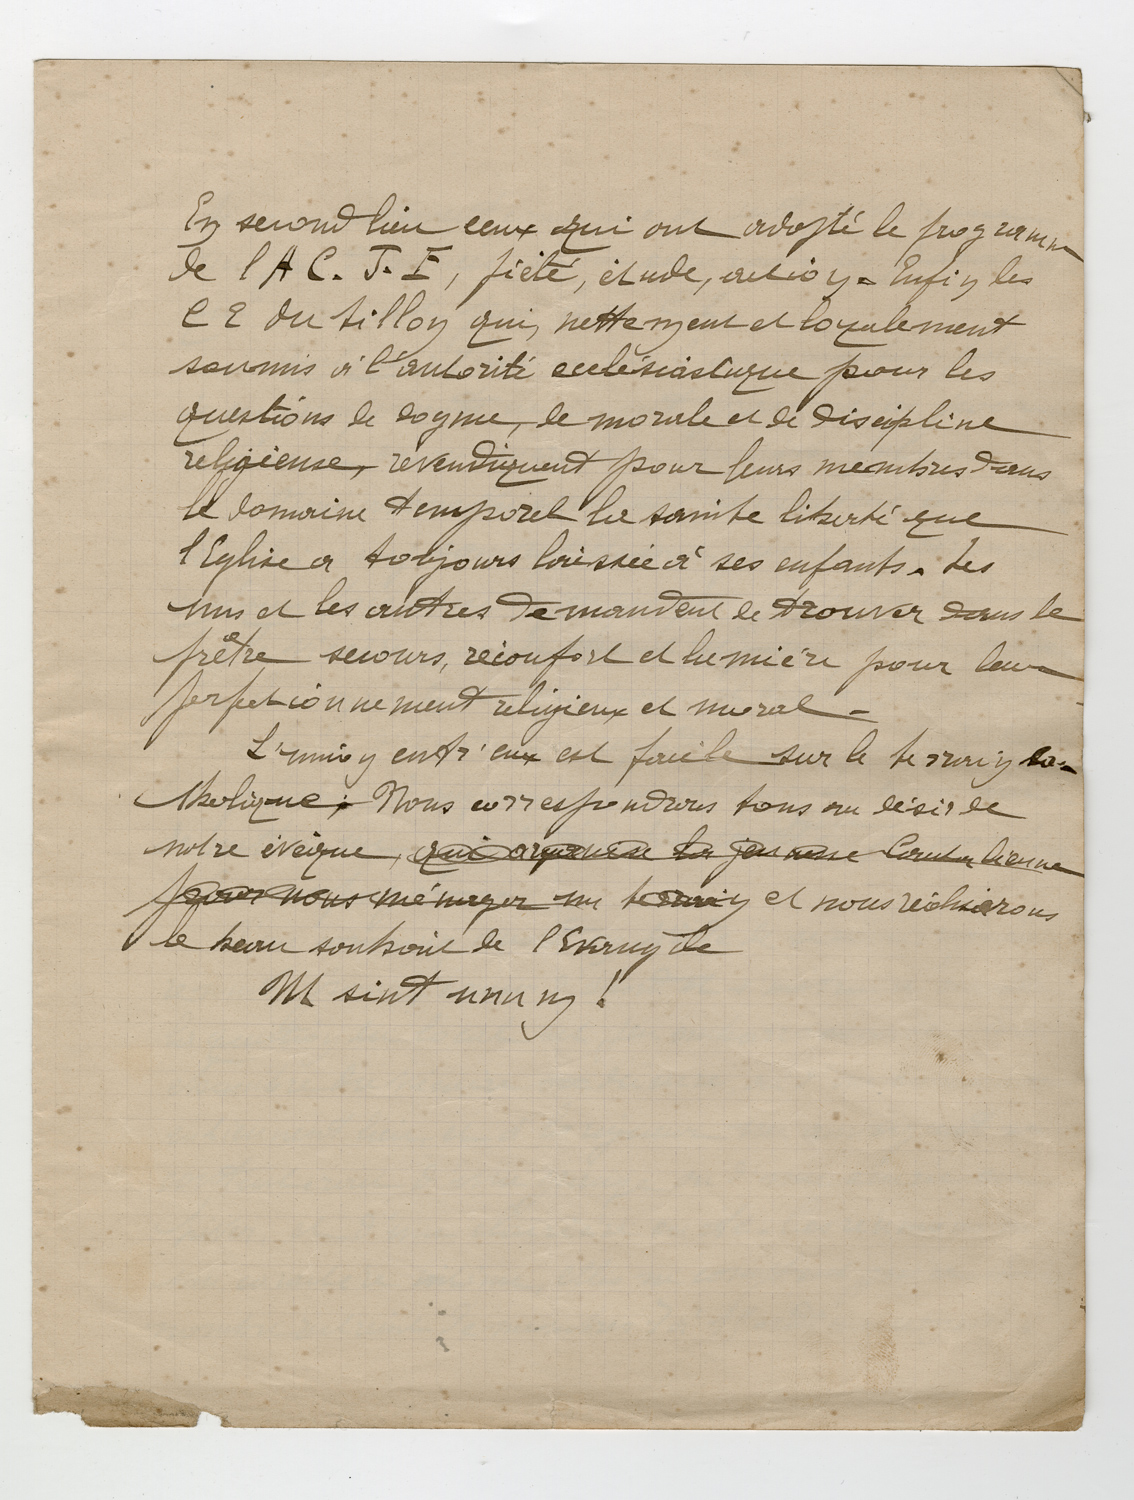 En second lieu ceux qui ont adopté le programme
de l'A C. J. F, piété, étude, action. Enfin les
C E du Sillon qui, nettement et loyalement
soumis à l'autorité ecclésiastique pour les
questions de dogme, de morale et de discipline
religieuse, revendiquent pour leurs membres dans
le domaine temporel la sainte liberté que
l'Eglise a toujours laissée à ses enfants. Les
uns et les autres demandent de trouver dans le
prêtre secours, réconfort et lumière pour leur
perfectionnement religieux et moral.
L'union entr'eux est facile sur le terrain ca-
tholique; Nous correspondrons tous au désir de
notre évêque, qui organise la jeunesse
pour nous ménager un terrain et nous réaliserons
le beau souhait de l'Evangile
Ut sint unum!